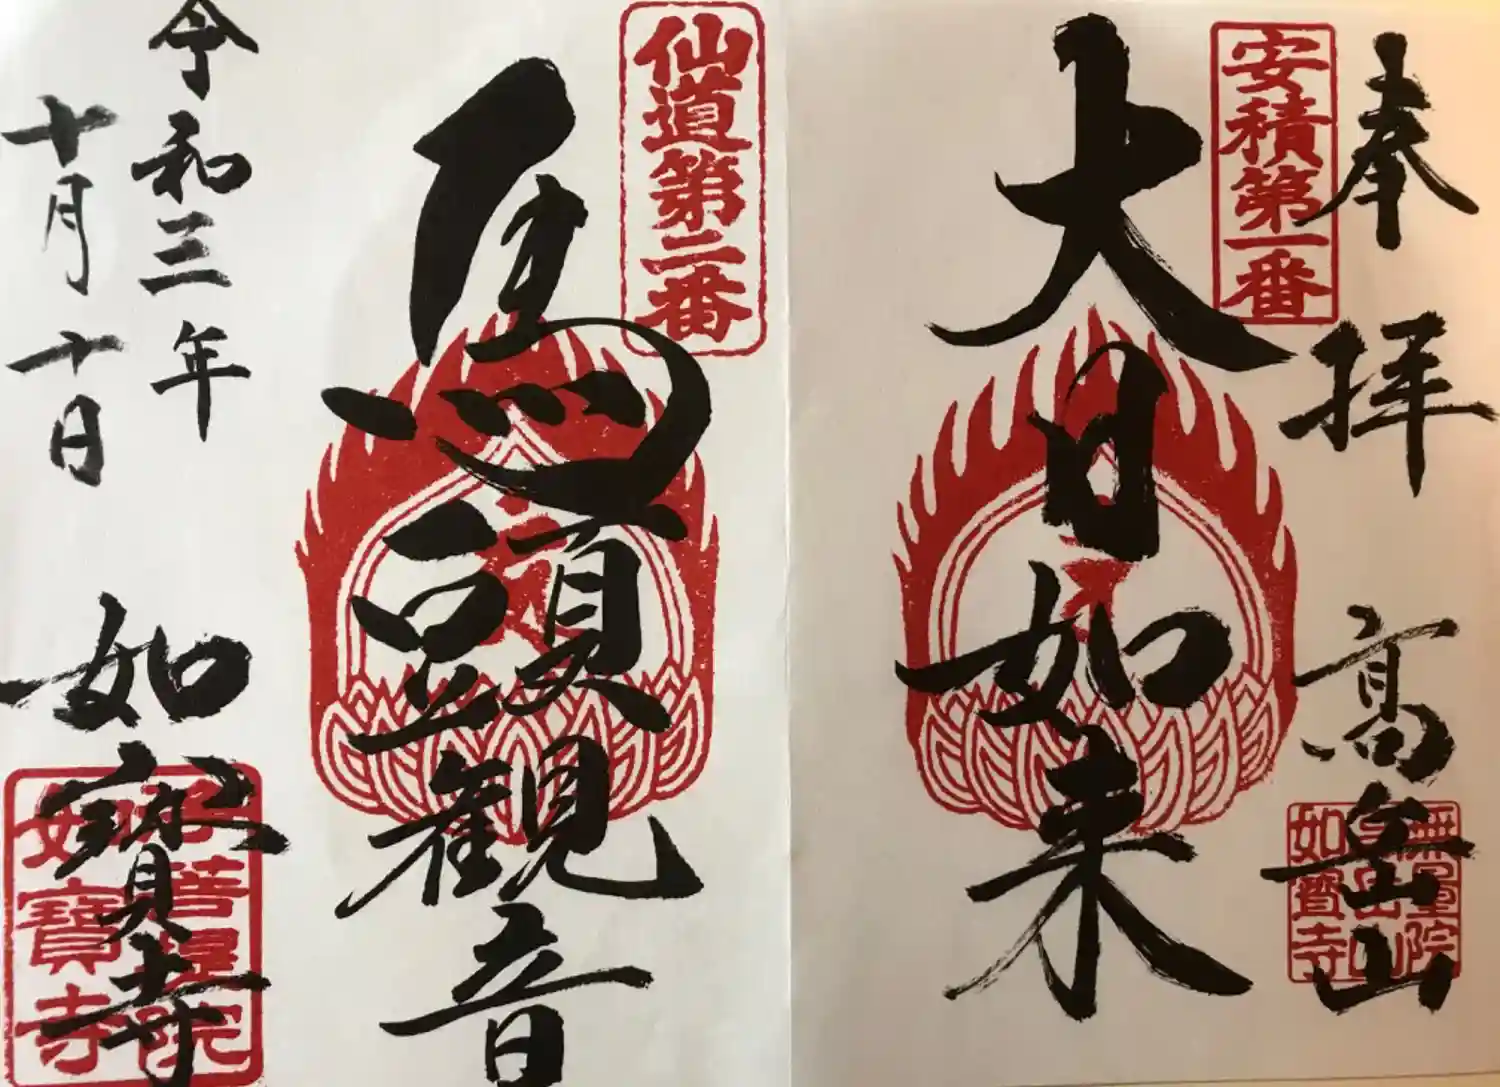 奉拝 高岳山
安積第一番
大日如来
無量院
高岳山
如寶寺
仙道第二番
馬頭觀音
令和三年
十月十日
如寶寺
菩提院
如寶寺